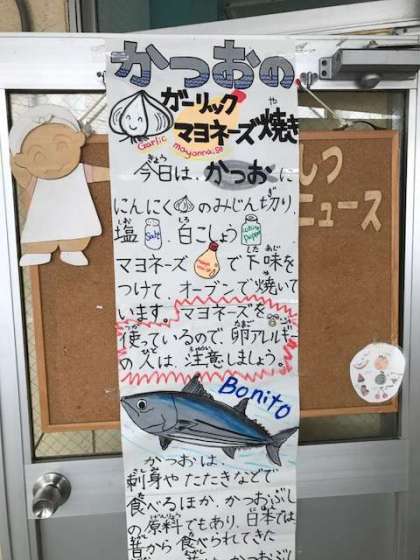 かつおの
ガーリック
Garlic
マヨネーズ焼き
や
mayonnaise
きょう
今日は、かつおに
にんにくのみじん切り、
しお しろ
塩 Salt 、白こしょう
White Pepper
した あじ
マヨネーズで下味を
つけて、オーブンで焼いて
います。マヨネーズを
つか たまご
使っているので、卵アレルギー
の人は注意しましょう。
Bonito
かつおは、
刺身やたたきなどで
食べるほか、かつおぶし
の原料でもあり、日本では
昔から食べられてきた
しつ
ニュース